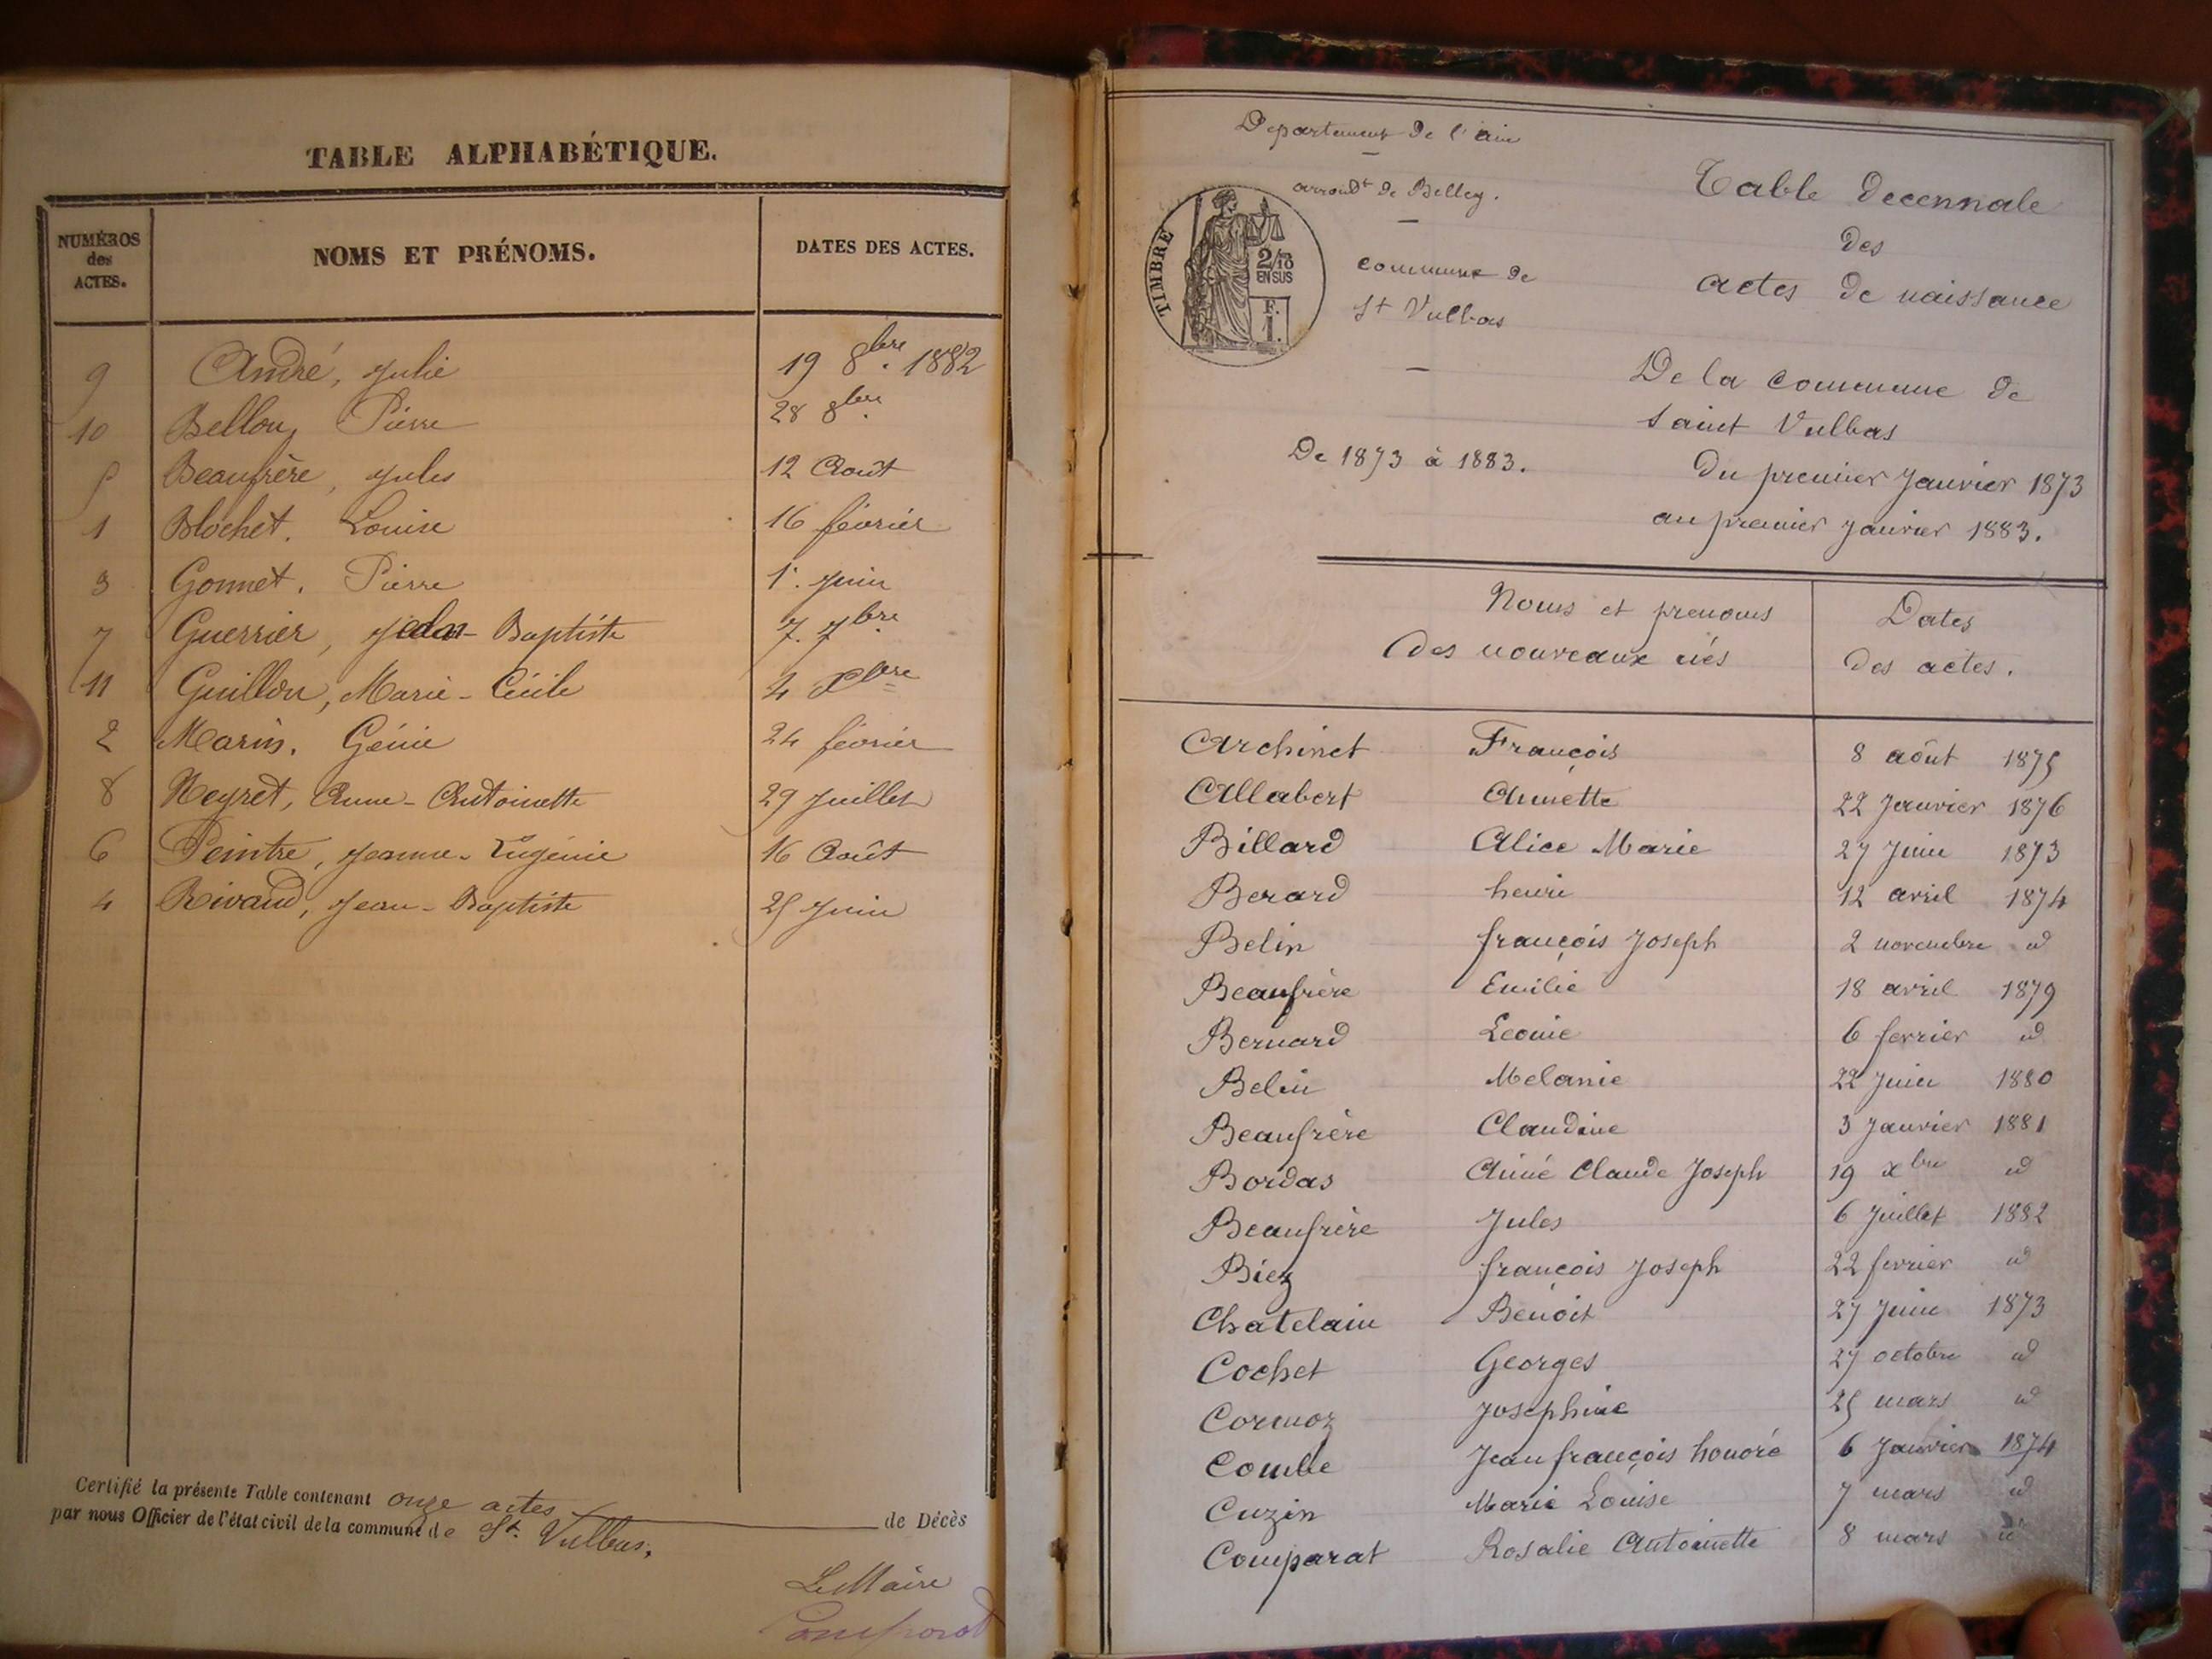 TABLE ALPHABÉTIQUE.
NUMÉROS des ACTES.
NOMS ET PRÉNOMS.
DATES DES ACTES.
9 André, Julie 19 8bre. 1882
10 Bellon, Pierre 28 8bre.
5 Beaufrère, Jules 12 Août
1 Blochet. Louise 16 février
3 Gonnet. Pierre 1er. Juin
7 Guerrier, Jean-Baptiste 7. 7bre
11 Guillon, Marie-Cécile 4 Xbre
2 Marin. Génie 24 février
8 Neyret, Anne-Antoinette 29 Juillet
6 Peintre, Jeanne-Eugénie 16 Août
4 Rivaud, Jean-Baptiste 25 Juin
Certifié la présente Table contenant onze actes de Décès
par nous Officier de l'état civil de la commune de St. Vulbas.
Le Maire
Comparat
Departement de l'ain
arrondt de Belley.
commune de
St Vulbas
De 1873 à 1883.
TIMBRE
2/10
EN SUS
F.
1.
Table decennale
des
actes de naissance
De la commune de
Saint Vulbas
Du premier Janvier 1873
au premier Janvier 1883.
Noms et prenoms
des nouveaux nés
Dates
des actes.
Archinet François 8 août 1875
Allabert Annette 22 Janvier 1876
Billard Alice Marie 27 Juin 1873
Berard henri 12 avril 1874
Belin françois Joseph 2 novembre id
Beaufrère Emilie 18 avril 1879
Bernard Leonie 6 fevrier id
Belin Melanie 22 Juin 1880
Beaufrère Claudine 3 Janvier 1881
Bordas Aimé Claude Joseph 19 xbre id
Beaufrère Jules 6 Juillet 1882
Biez françois Joseph 22 fevrier id
Chatelain Benoit 27 Juin 1873
Cochet Georges 27 octobre id
Cormoz Josephine 25 mars id
Combe Jean françois honoré 6 Janvier 1874
Cuzin Marie Louise 7 mars id
Comparat Rosalie Antoinette 8 mars id